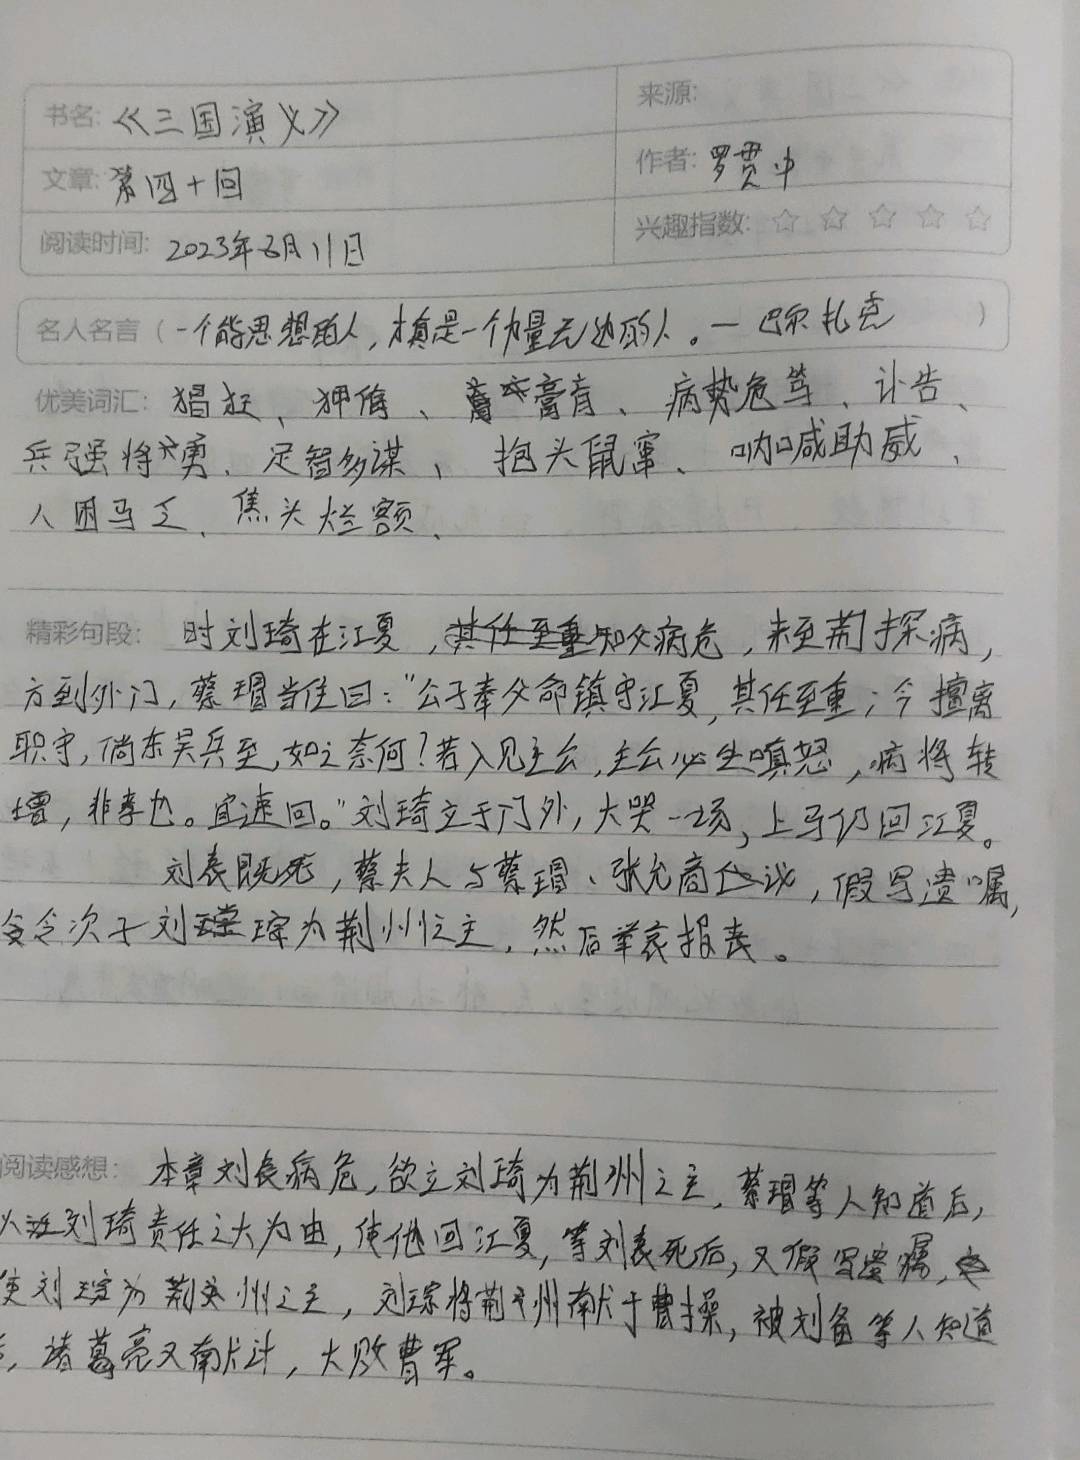 书名: 《三国演义》
来源:
文章: 第四十回
作者: 罗贯中
阅读时间: 2023年6月11日
兴趣指数: ☆ ☆ ☆ ☆ ☆
名人名言（一个能思想的人，才真是一个力量无边的人。一巴尔扎克）
优美词汇: 猖狂、狎侮、膏肓、病势危笃、讣告、
兵强将勇、足智多谋、抱头鼠窜、呐喊助威、
人困马乏、焦头烂额、
精彩句段: 时刘琦在江夏，知父病危，来至荆探病，
方到外门，蔡瑁当住曰："公子奉父命镇守江夏，其任至重；今擅离
职守，倘东吴兵至，如之奈何？若入见主公，主公必生嗔怒，病将转
增，非孝也。宜速回。"刘琦立于门外，大哭一场，上马仍回江夏。
刘表既死，蔡夫人与蔡瑁、张允商议，假写遗嘱，
令次子刘琮为荆州之主，然后举哀报丧。
阅读感想: 本章刘表病危，欲立刘琦为荆州之主，蔡瑁等人知道后，
以刘琦责任之大为由，使他回江夏，等刘表死后，又假写遗嘱，
使刘琮为荆州之主，刘琮将荆州献于曹操，被刘备等人知道
后，诸葛亮又献计，大败曹军。